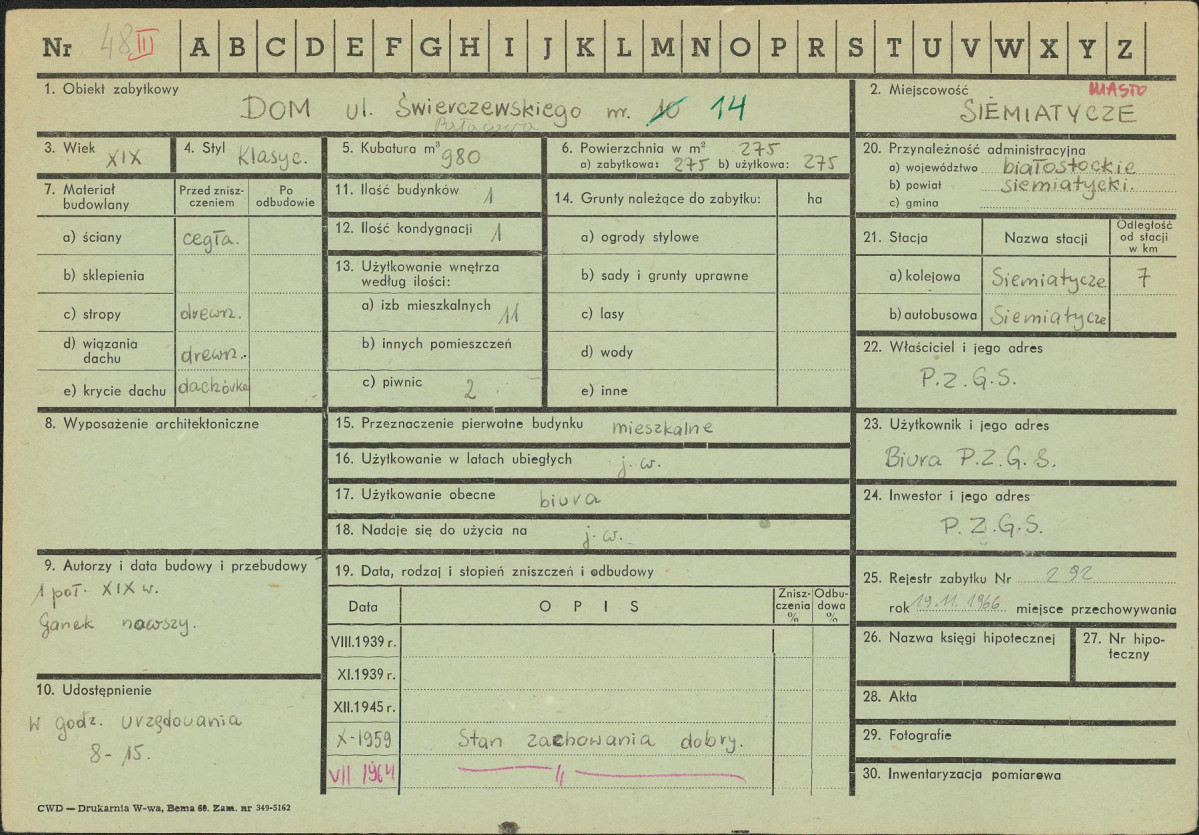 Nr 48 III A B C D E F G H I J K L M N O P R S T U V W X Y Z
1. Obiekt zabytkowy
DOM ul. Świerczewskiego nr. 10 14
Pałacowa
2. Miejscowość MIASTO
SIEMIATYCZE
3. Wiek XIX
4. Styl Klasyc.
5. Kubatura m³ 980
6. Powierzchnia w m² 275
a) zabytkowa: 275 b) użytkowa: 275
20. Przynależność administracyjna
a) województwo białostockie
b) powiat siemiatycki.
c) gmina
7. Materiał budowlany
Przed zniszczeniem
Po odbudowie
a) ściany cegła.
b) sklepienia
c) stropy drewn.
d) wiązania dachu drewn.
e) krycie dachu dachówka
11. Ilość budynków 1
12. Ilość kondygnacji 1
13. Użytkowanie wnętrza
według ilości:
a) izb mieszkalnych 11
b) innych pomieszczeń
c) piwnic 2
14. Grunty należące do zabytku: ha
a) ogrody stylowe
b) sady i grunty uprawne
c) lasy
d) wody
e) inne
21. Stacja Nazwa stacji Odległość od stacji w km
a) kolejowa Siemiatycze 7
b) autobusowa Siemiatycze
22. Właściciel i jego adres
P.Z.G.S.
8. Wyposażenie architektoniczne
15. Przeznaczenie pierwotne budynku mieszkalne
16. Użytkowanie w latach ubiegłych j.w.
17. Użytkowanie obecne biura
18. Nadaje się do użycia na j.w.
23. Użytkownik i jego adres
Biura P.Z.G.S.
24. Inwestor i jego adres
P.Z.G.S.
9. Autorzy i data budowy i przebudowy
1 poł. XIX w.
Ganek nowszy.
10. Udostępnienie
W godz. urzędowania
8-15.
19. Data, rodzaj i stopień zniszczeń i odbudowy
Data OPIS Zniszczenia % Odbudowa %
VIII.1939 r.
XI.1939 r.
XII.1945 r.
X-1959 Stan zachowania dobry.
VII 1964 — 〃 —
25. Rejestr zabytku Nr 292
rok 19.11.1966 miejsce przechowywania
26. Nazwa księgi hipotecznej
27. Nr hipoteczny
28. Akta
29. Fotografie
30. Inwentaryzacja pomiarowa
CWD — Drukarnia W-wa, Bema 60. Zam. nr 349-5162